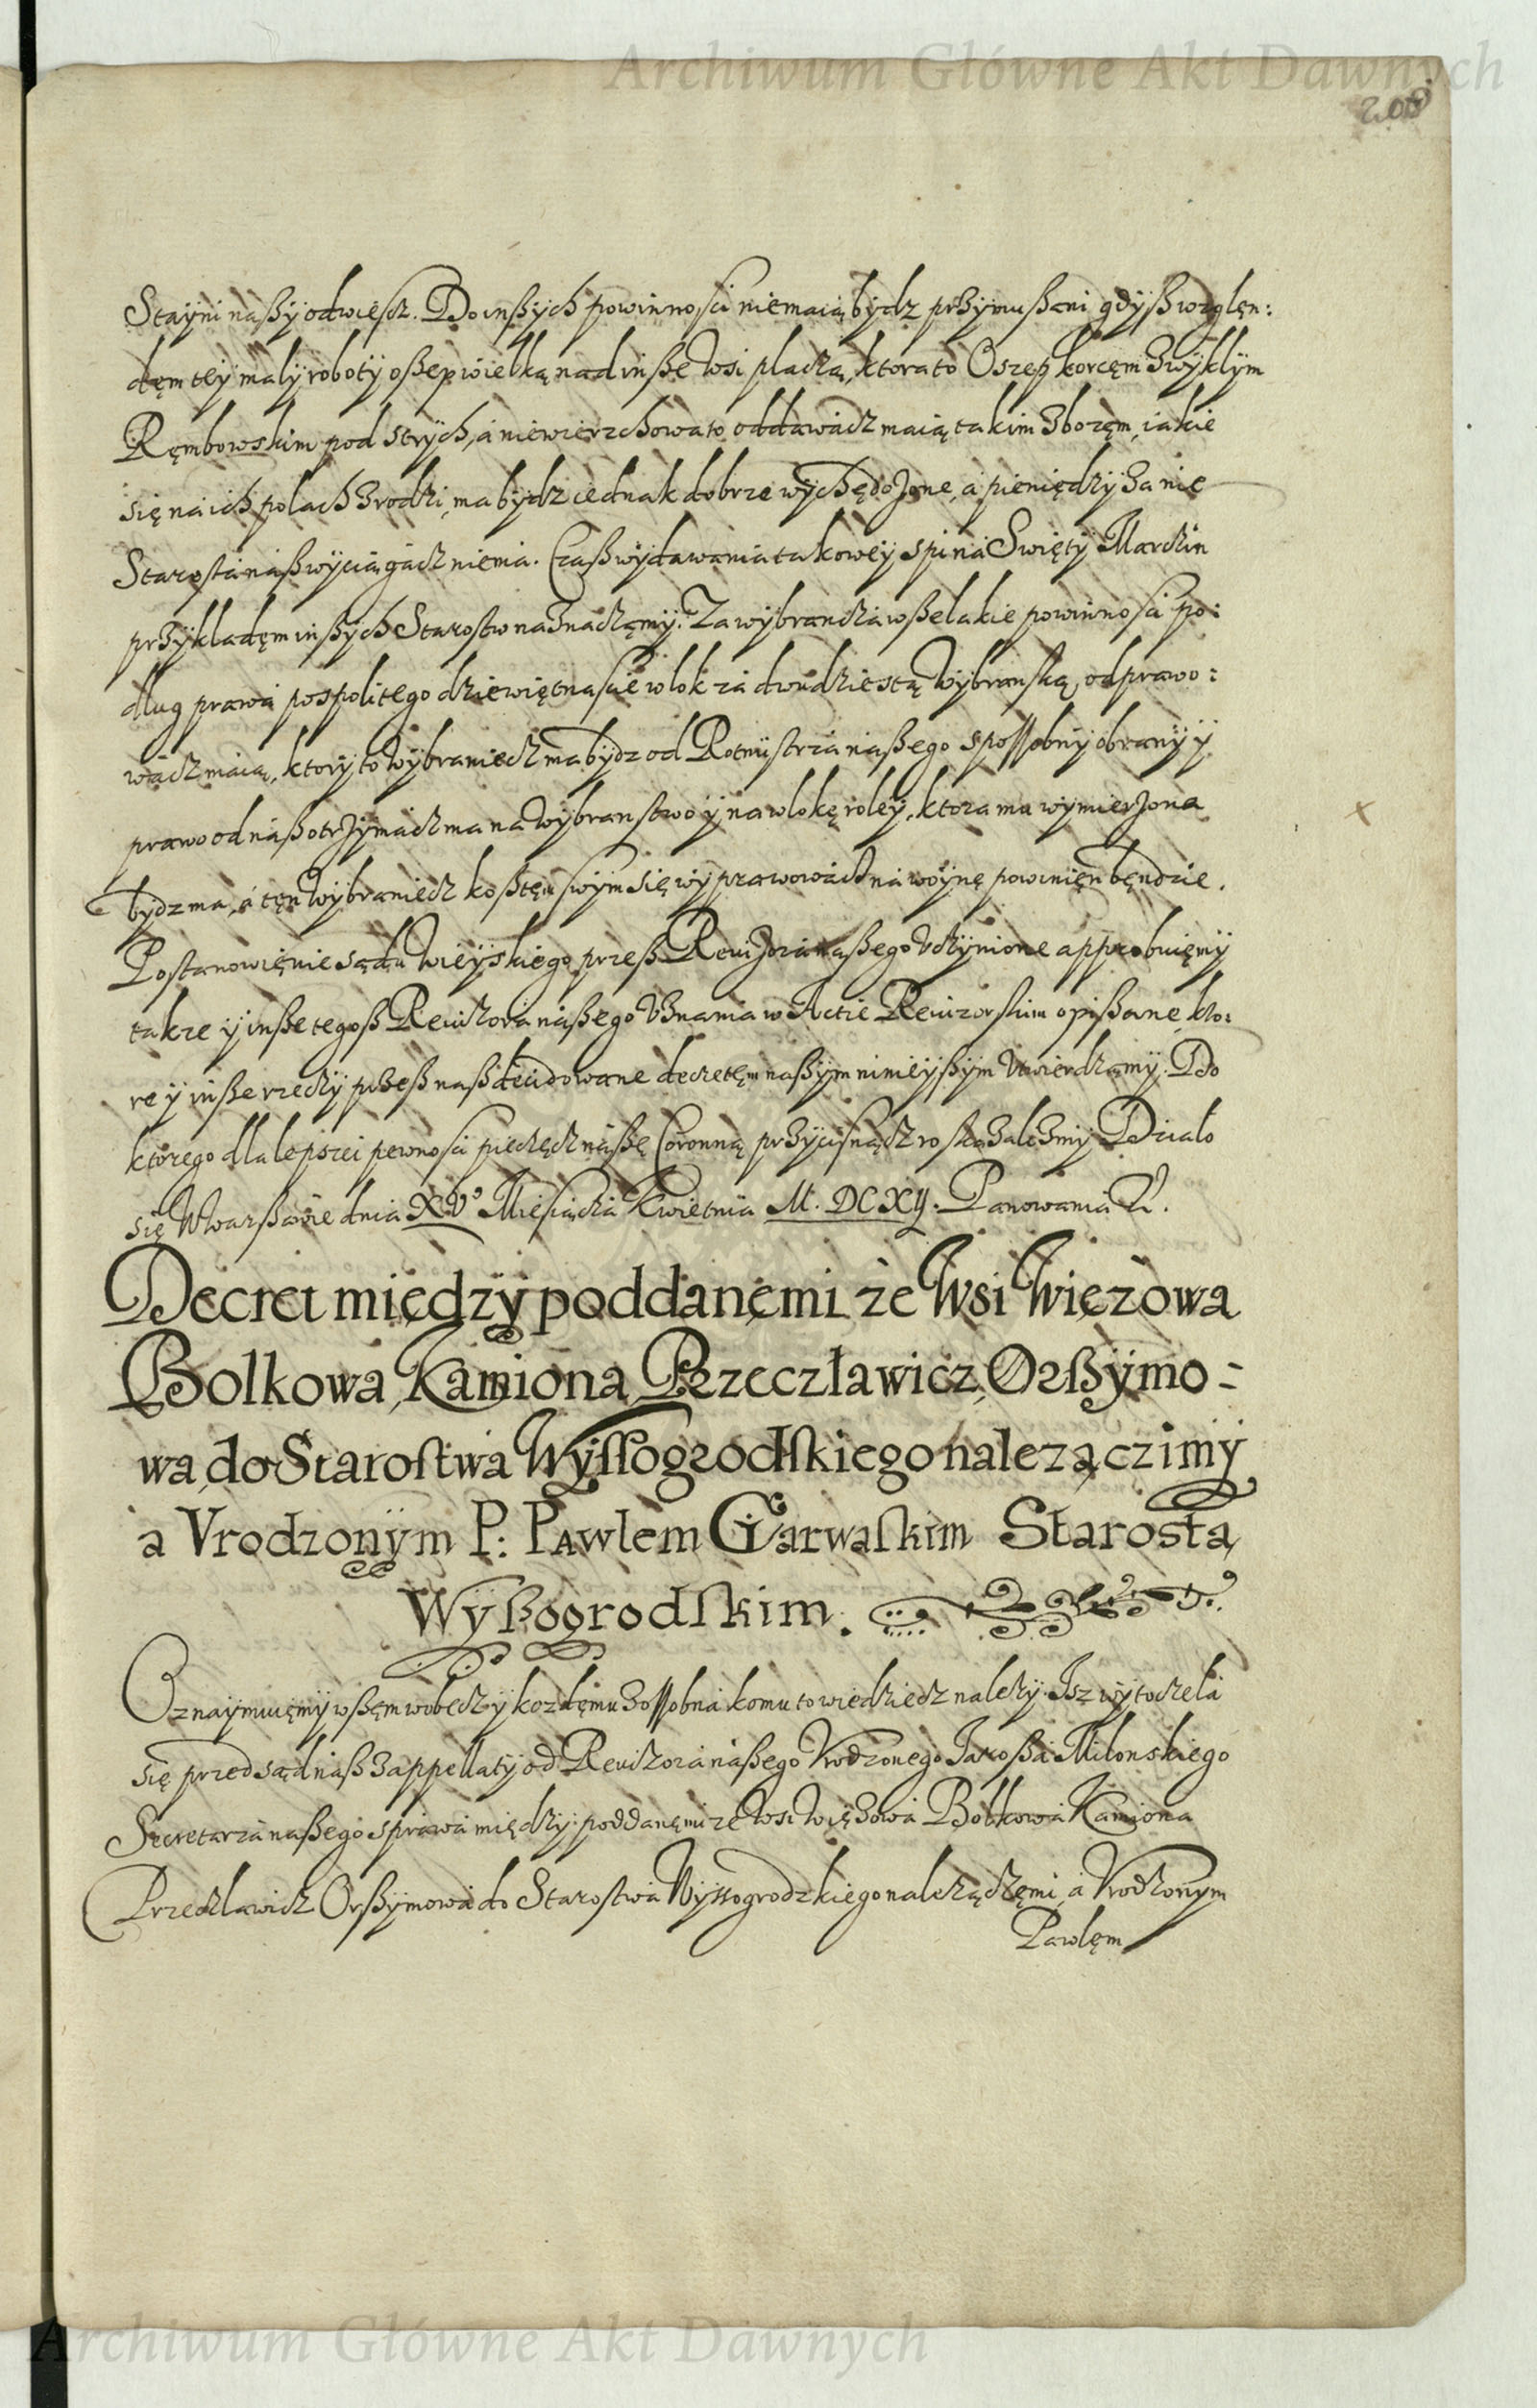 Archiwum Główne Akt Dawnych
208
Stayni naßy odwiescz. Do inßych powinnosci nie maią bydz przymußeni gdyß wzglęn:
dęm tey mały roboty oßep wielką nad inße wsi płaczą, ktora to Oszep korcęm zwykłym
Ręmbowskim pod strych, a nie wierzchowato oddawacz maią takim zbozęm, iakie
się na ich polach zrodzi, ma bydz iednak dobrze wychędozone, a pieniędzy za nie
Starosta naß wyciągacz niema. Czaß wydawania takowey spi na Swięty Marczin
przykładęm inßych Starostw naznaczamy. Za wybrancza wßelakie powinnosci po:
dług prawa pospolitego dziewiętnascie włok za dwudziestą wybranską, odprawo:
wacz maią, ktory to wybraniecz ma bydz od Rotmistrza naßego spossobny obrany y
prawo od naß otrzymacz ma na wybranstwo y na włokę roley, ktora mu wymierzona
bydz ma, a tęn wybraniecz koßtęm swym się wyprawowacz na woynę powinięn będzie.
Postanowięnie sądu wieyskiego przeß Rewizora naßego uczynione approbuięmy
takze y inße tegoß Rewizora naßego uznania w Actie Rewizorskim opißane, kto:
re y inße rzeczy przeß naß decidowane decretęm naßym ninieyßym utwierdzamy. Do
ktorego dla lepszei pewnosci pieczęcz naßę Coronną przycisnącz roskazalismy. Działo
się w Warßawie dnia XVo Miesiącza Kwietnia M. DCXII. Panowania Ut.
Decret między poddanęmi ze Wsi Więzowa
Bolkowa, Kamiona, Przeczławicz, Orßymo-
wa, do Starostwa Wyssogrodskiego nalezączimy
a Vrodzonym P: Pawlem Garwaskim Starostą
Wyßogrodskim.
Oznaymuięmy wßęm wobeczy kozdęmu zossobna komu to wiedziecz nalezy. Isz wytoczela
się przed sąd naß z appellaty od Rewizora naßego Vrodzonego Iaroßa Milonskiego
Secretarza naßego sprawa między poddanęmi ze wsi Więzowa Bolkowa Kamiona
Przeczlawicz Orßymowa do Starostwa Wyssogrodzkiego nalezączęmi, a Vrodzonym
Pawlęm
Archiwum Główne Akt Dawnych